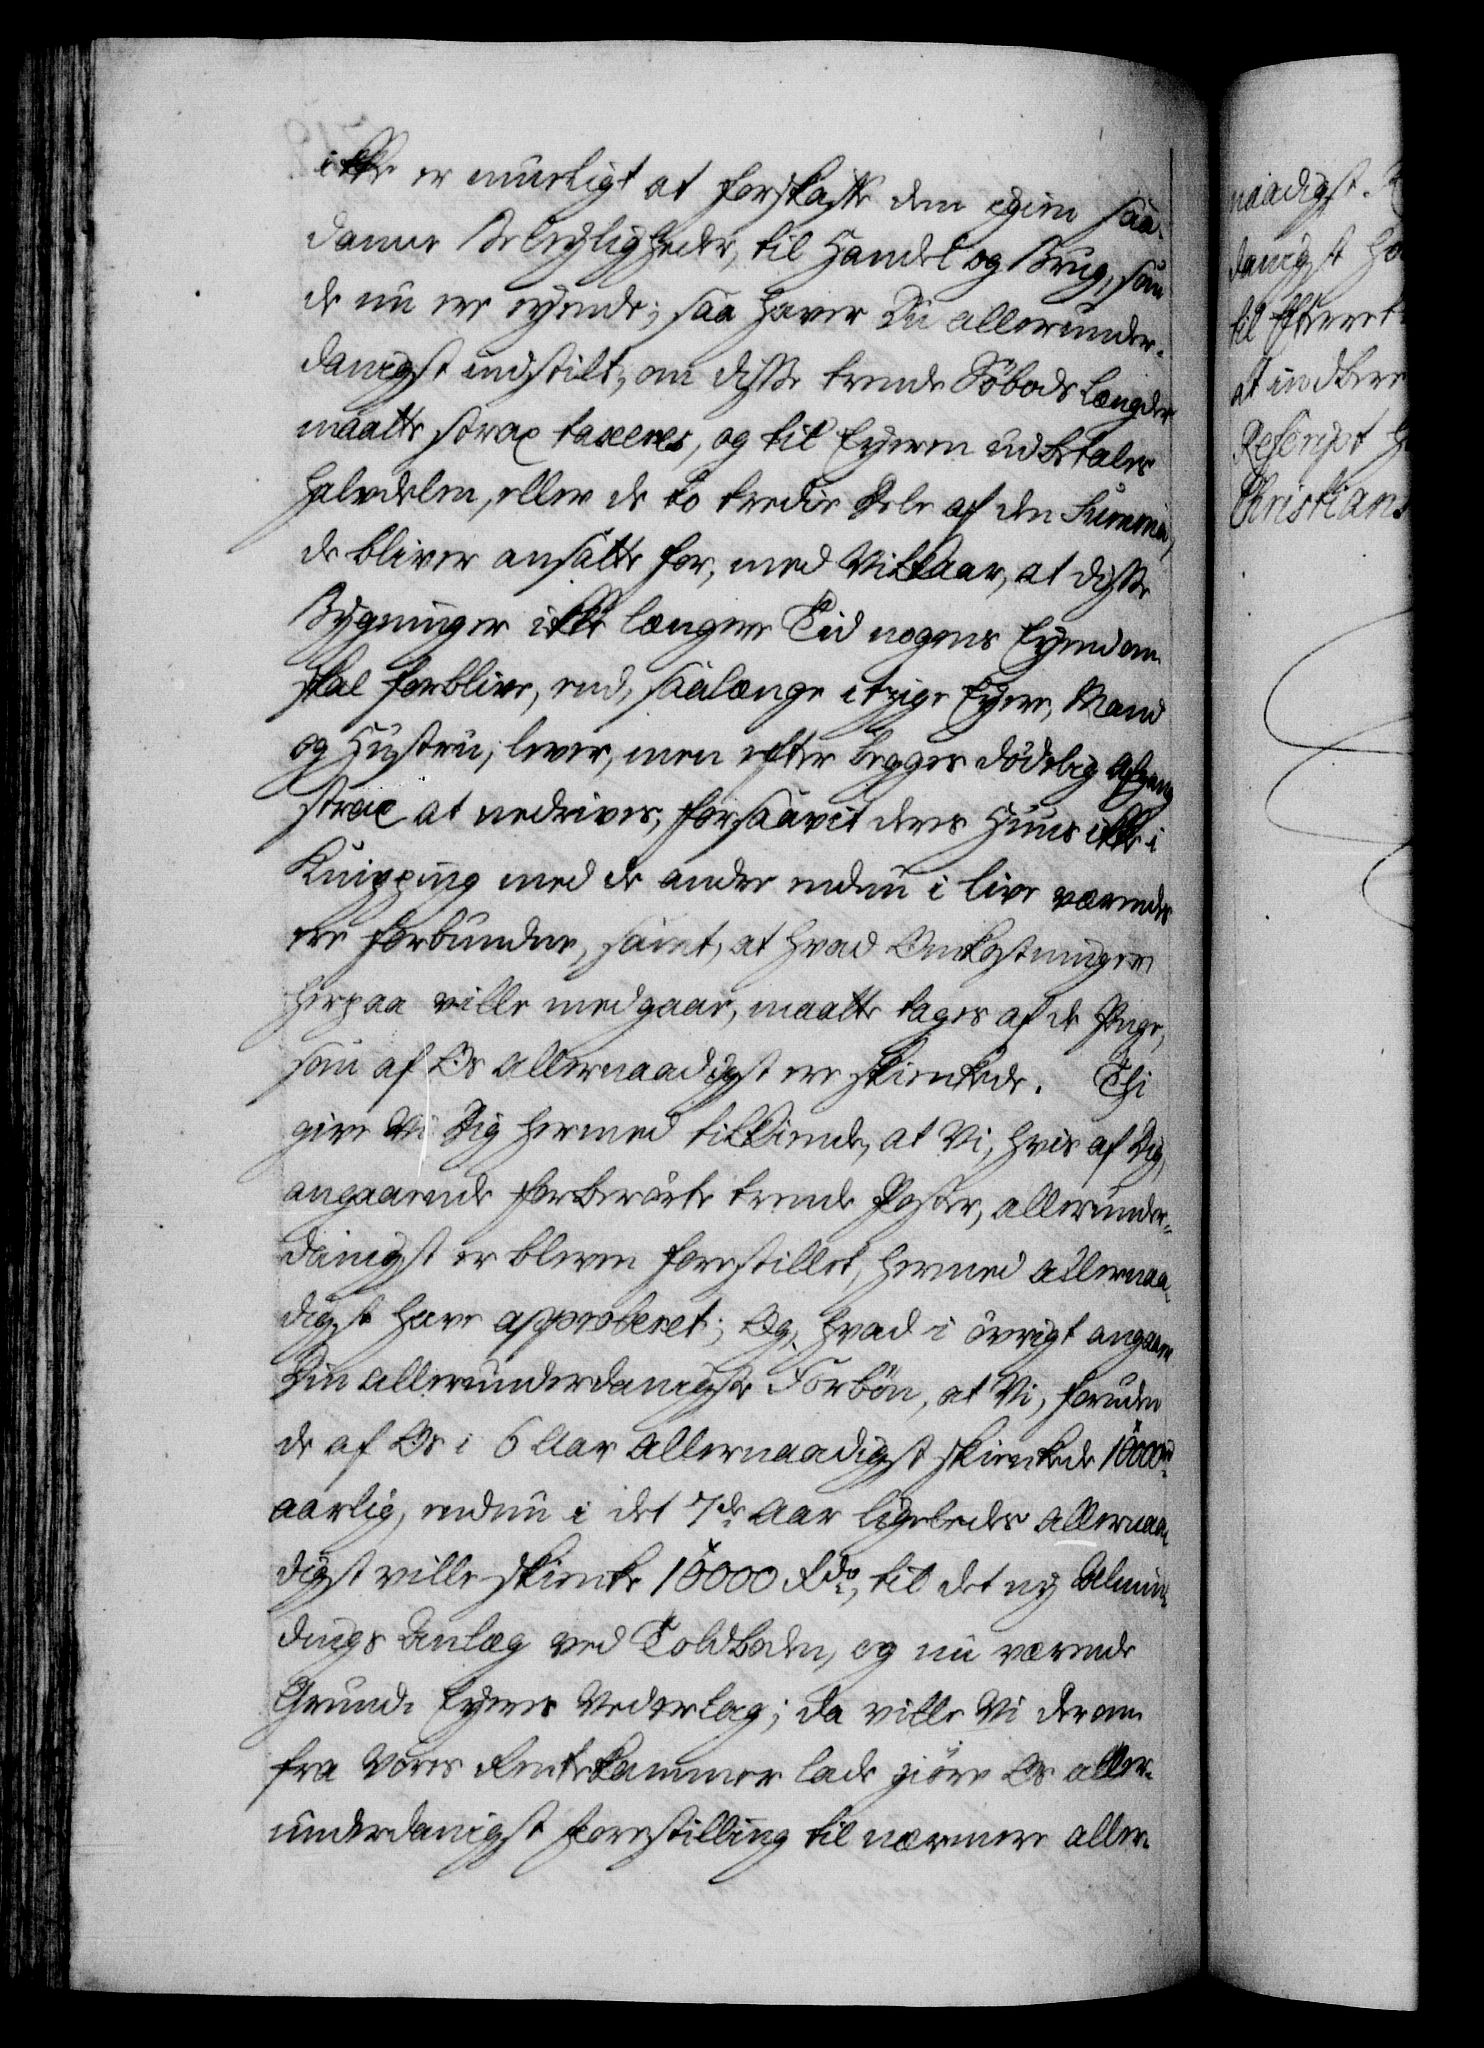 ikke er mueligt at forskaffe dem igien saa-
danne Beleyligheder, til Handel og Brug, som
de nu ere eyende; saa haver Du allerunder-
danigst indstilt, om disse trende Söbods Længder
maatte strax taxeres, og til Eyeren udbetales
halvdelen, eller de to tredie Dele af den Summa,
de bliver ansatte for, med Vilkaar, at disse
Bygninger ikke længere Tid nogens Eyendom
skal forblive, end, saalænge itzige Eyere, Mand
og Hustru, lever, men efter begges dödelig Afgang
strax at nedrives, forsaavit deres Huus ikke i
Knipping med de andre endnu i live værendes
ere forbundne, samt, at hvad Omkostninger
herpaa ville medgaae, maatte tages af de Penge,
som af Os allernaadigst ere skienkede. Thi
give Vi Dig hermed tilkiende, at Vi, hvis af Dig,
angaaende forberörte trende Poster, allerunder-
danigst er bleven forestillet, hermed allernaa-
digst have approberet; Og, hvad i övrigt angaaer
Din allerunderdanigste Forbön, at Vi, foruden
de af Os i 6 Aar allernaadigst skienkede 10000 rd
aarlig, endnu i det 7de Aar ligeledes allernaa-
digst ville skienke 10000 Rdr, til det ny Almin-
dings Anlæg ved Toldboden, og nu værende
Grund-Eyeres Vederlag; da ville Vi derom
fra Vores Rentekammer lade giöre Os aller-
underdanigst Forestilling til nærmere aller-
naadigst
danigst
til Efterret
at indbere
Rescript
Christians